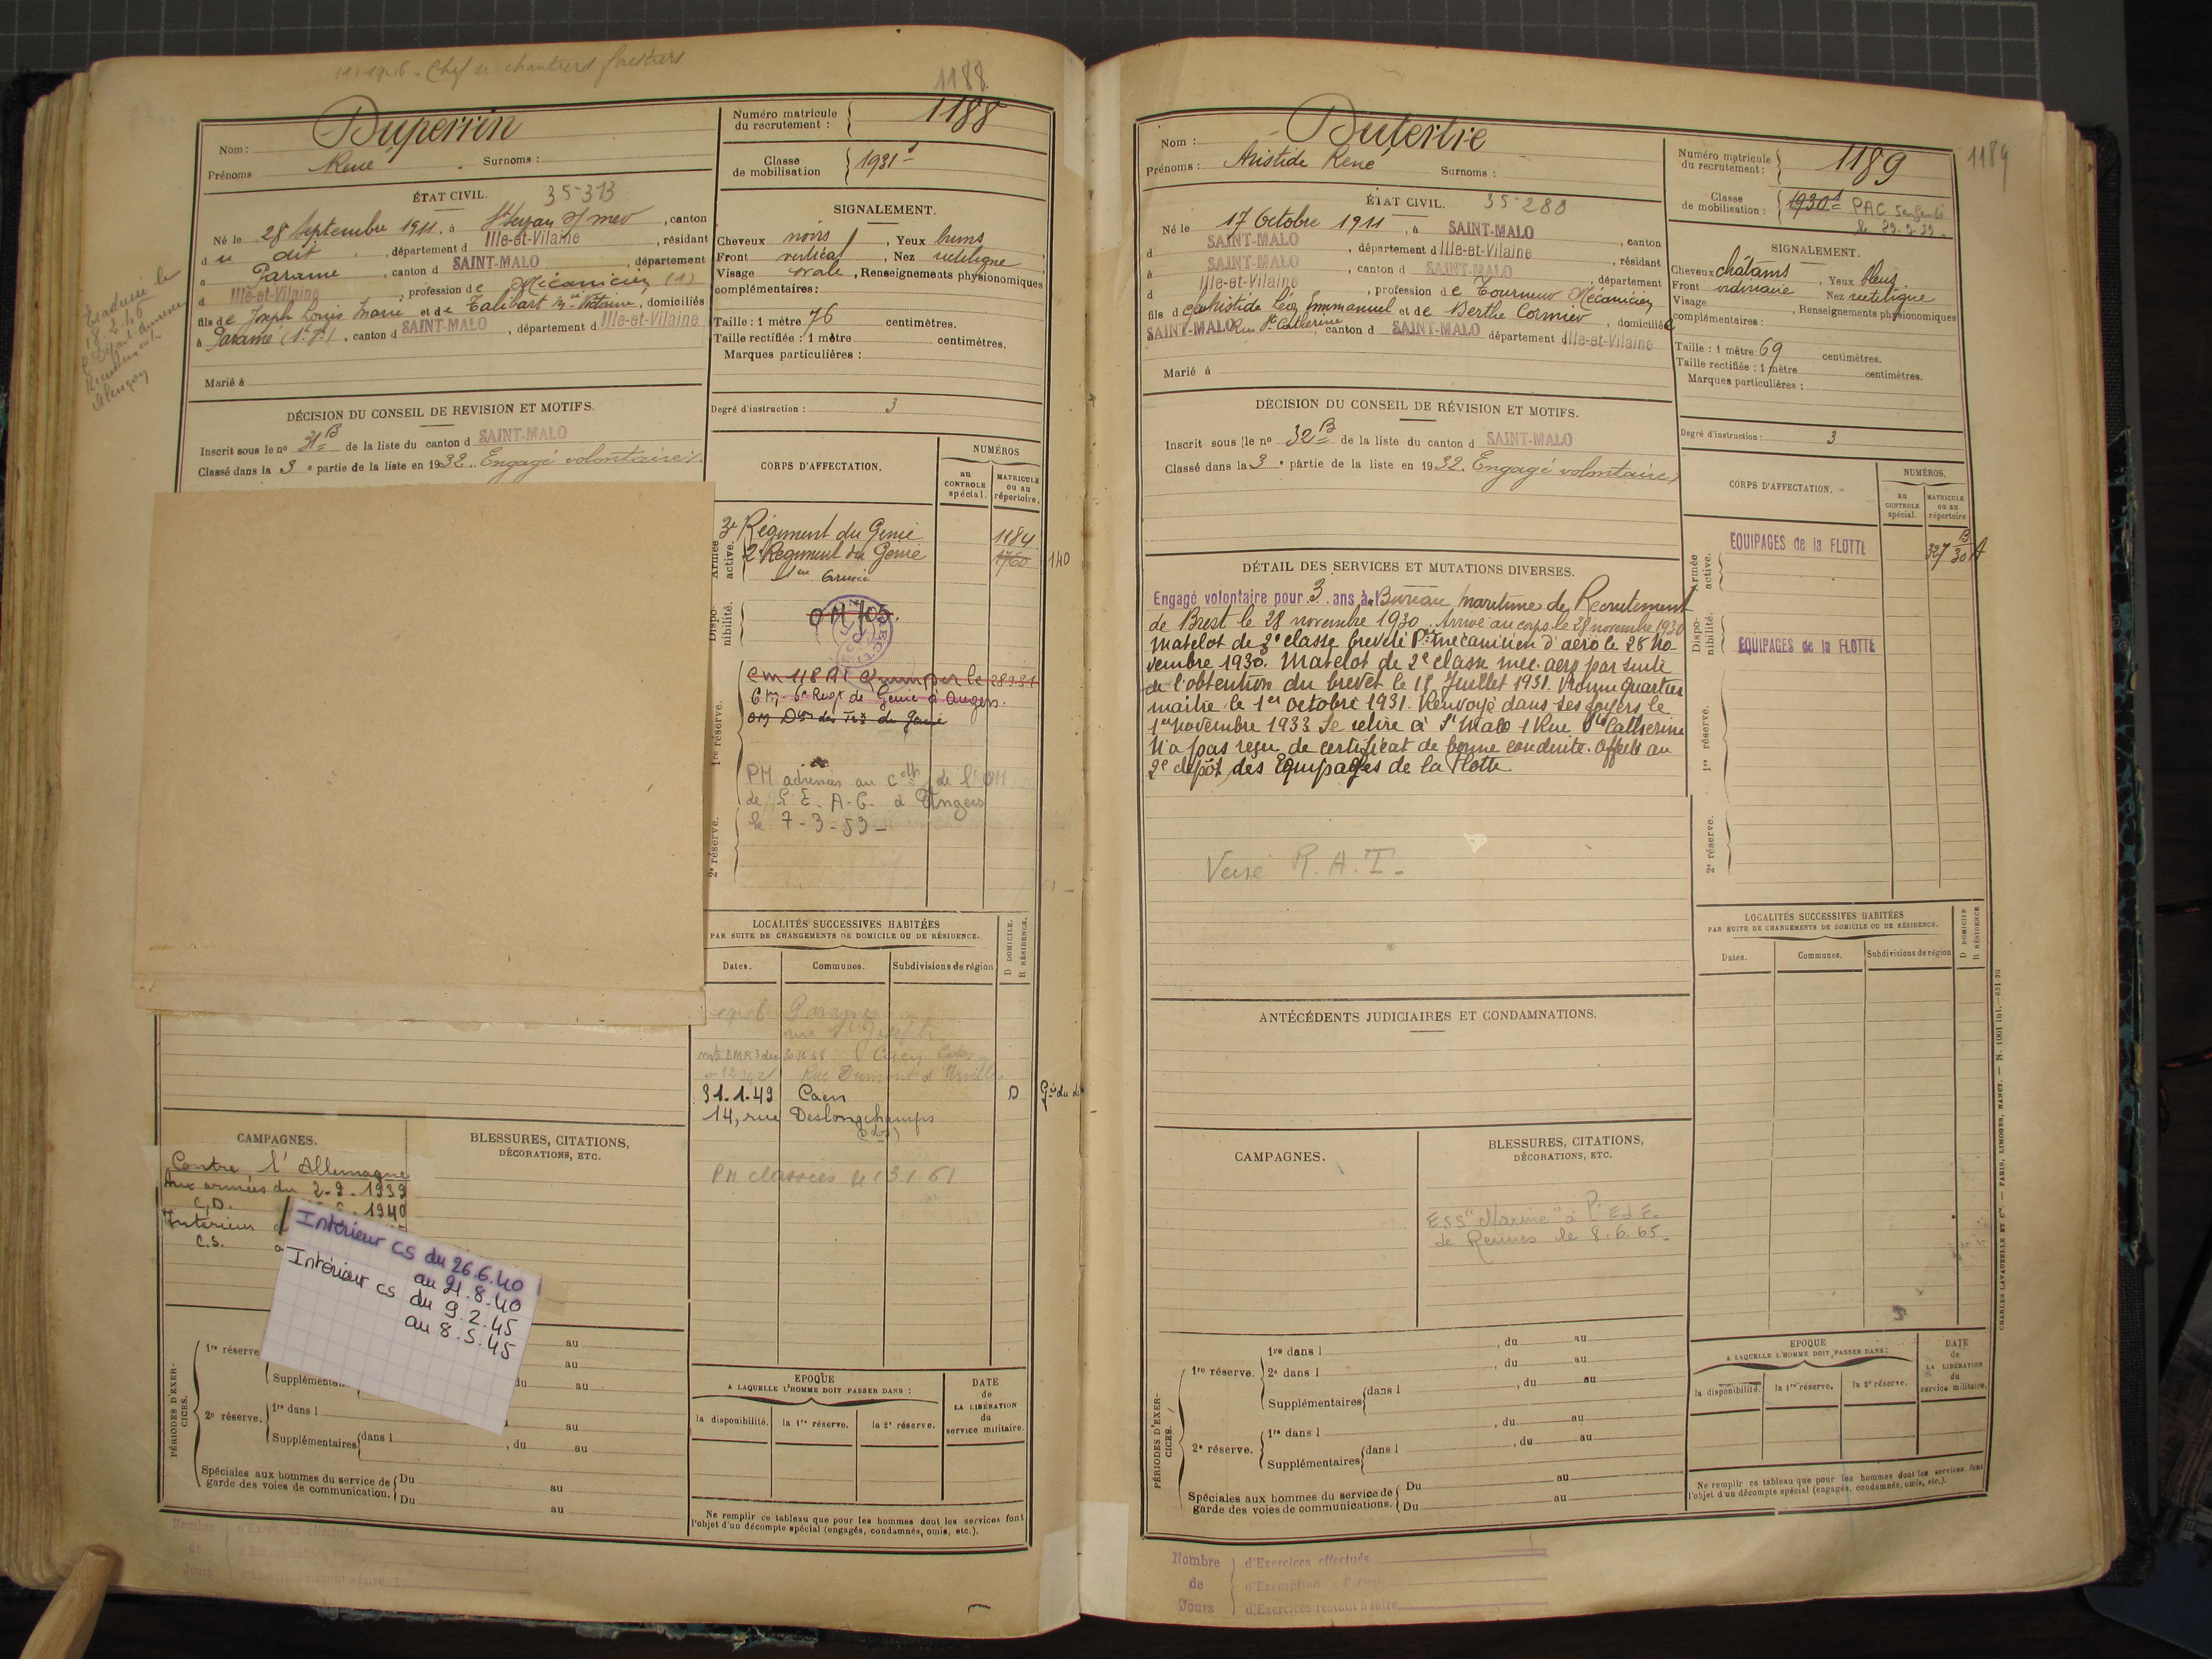 Chef de chantiers forestiers
1188
Nom : Duperrin
Prénoms René Surnoms :
Numéro matricule du recrutement : 1188
Classe de mobilisation 1931
ÉTAT CIVIL. 35-313
Né le 28 Septembre 1911, à St Servan s/ mer, canton
d u dit, département d Ille-et-Vilaine, résidant
à Paramé, canton d SAINT-MALO, département
d Ille-et-Vilaine, profession de Mécanicien (1)
fils de Joseph Louis Marie et de Talibart, domiciliés
à Paramé, canton d SAINT-MALO, département d Ille-et-Vilaine
Marié à
SIGNALEMENT.
Cheveux noirs, Yeux bruns
Front vertical, Nez rectiligne
Visage ovale, Renseignements physionomiques
complémentaires :
Taille : 1 mètre 76 centimètres.
Taille rectifiée : 1 mètre centimètres.
Marques particulières :
Degré d'instruction : 3
DÉCISION DU CONSEIL DE REVISION ET MOTIFS.
Inscrit sous le no 31 B de la liste du canton d SAINT-MALO
Classé dans la 3e partie de la liste en 1932. Engagé volontaire
CORPS D'AFFECTATION.
NUMÉROS
au CONTROLE spécial.
MATRICULE ou au répertoire.
Armée active.
3e Régiment du Génie 1184
2e Régiment du Génie 1760 140
Disponibilité.
OM 105.
1re réserve.
Cm 118 RI Quimper le 28.3.31
6e Regt de Génie à Angers.
PM adressées au Cdt de l'OM
de G. E. A. G. à Angers
le 7-3-59
2e réserve.
LOCALITÉS SUCCESSIVES HABITÉES
PAR SUITE DE CHANGEMENTS DE DOMICILE OU DE RÉSIDENCE.
Dates. Communes. Subdivisions de région
D DOMICILE. R RÉSIDENCE.
Paramé
Caen
Rue Dumont d'Urville
31.1.49 Caen D
14, rue Deslongchamps
PM classées le 13.1.61
CAMPAGNES.
Contre l'Allemagne
Aux armées du 2-9-1939
C.D. 1940
Intérieur
C.S.
BLESSURES, CITATIONS,
DÉCORATIONS, ETC.
Intérieur CS du 26.6.40
au 21.8.40
Intérieur CS du 9.2.45
au 8.5.45
PÉRIODES D'EXERCICES.
1re réserve au
au
Supplément du au
2e réserve. 1re dans l au
Supplémentaires dans l , du au
Spéciales aux hommes du service de garde des voies de communication. Du au
Du au
EPOQUE
A LAQUELLE L'HOMME DOIT PASSER DANS :
la disponibilité. la 1re réserve. la 2e réserve.
DATE de LA LIBÉRATION du service militaire.
Ne remplir ce tableau que pour les hommes dont les services font
l'objet d'un décompte spécial (engagés, condamnés, omis, etc.).
Nombre de Jours
d'Exercices effectués
d'Exercices restant à faire
Nom : Dutertre
Prénoms : Aristide René Surnoms :
Numéro matricule du recrutement : 1189
1189
Classe de mobilisation : 1930 PAC 5 enfants
ÉTAT CIVIL. 35-280
Né le 17 Octobre 1911, à SAINT-MALO
d SAINT-MALO, département d Ille-et-Vilaine, canton
à SAINT-MALO, canton d SAINT-MALO, résidant
d Ille-et-Vilaine, profession de Tourneur Mécanicien, département
fils de Aristide Léon Emmanuel et de Berthe Cormier, domiciliés
SAINT-MALO Rue Ste Catherine, canton d SAINT-MALO département d Ille-et-Vilaine
Marié à
SIGNALEMENT.
Cheveux châtains, Yeux bleus.
Front ordinaire Nez rectiligne
Visage, Renseignements physionomiques
complémentaires :
Taille : 1 mètre 69 centimètres.
Taille rectifiée : 1 mètre centimètres.
Marques particulières :
Degré d'instruction : 3
DÉCISION DU CONSEIL DE RÉVISION ET MOTIFS.
Inscrit sous le no 32 B de la liste du canton d SAINT-MALO
Classé dans la 3e partie de la liste en 1932. Engagé volontaire
CORPS D'AFFECTATION.
NUMÉROS.
au CONTROLE spécial.
MATRICULE ou au répertoire
Armée active.
EQUIPAGES de la FLOTTE 327
Disponibilité.
EQUIPAGES de la FLOTTE
1re réserve.
2e réserve.
DÉTAIL DES SERVICES ET MUTATIONS DIVERSES.
Engagé volontaire pour 3 ans à Bureau maritime de Recrutement
de Brest le 28 novembre 1930. Arrivé au corps le 28 novembre 1930
Matelot de 3e classe breveté Pre mécanicien d'aéro le 28 No-
vembre 1930. Matelot de 2e classe mec. aéro par suite
de l'obtention du brevet le 15 Juillet 1931. Promu Quartier
maître le 1er octobre 1931. Renvoyé dans ses foyers le
1er Novembre 1933. Se retire à St Malo 1 Rue Ste Catherine
N'a pas reçu de certificat de bonne conduite. Affecté au
2e dépôt des Equipages de la Flotte
Versé R.A.T.
LOCALITÉS SUCCESSIVES HABITÉES
PAR SUITE DE CHANGEMENTS DE DOMICILE OU DE RÉSIDENCE.
Dates. Communes. Subdivisions de région
D DOMICILE R RÉSIDENCE
ANTÉCÉDENTS JUDICIAIRES ET CONDAMNATIONS.
CAMPAGNES.
BLESSURES, CITATIONS,
DÉCORATIONS, ETC.
ESS "Marine" à l'E d E.
de Rennes le 8.6.65
PÉRIODES D'EXERCICES.
1re réserve. 1re dans l , du au
2e dans l , du au
Supplémentaires dans l , du au
2e réserve. 1re dans l , du au
Supplémentaires dans l , du au
Spéciales aux hommes du service de garde des voies de communications. Du au
Du au
EPOQUE
A LAQUELLE L'HOMME DOIT PASSER DANS :
la disponibilité. la 1re réserve. la 2e réserve.
DATE de LA LIBÉRATION du service militaire.
Ne remplir ce tableau que pour les hommes dont les services font
l'objet d'un décompte spécial (engagés, condamnés, omis, etc.).
CHARLES-LAVAUZELLE ET Cie. — PARIS, LIMOGES, NANCY.
Nombre de Jours
d'Exercices effectués
d'Exemption
d'Exercices restant à faire